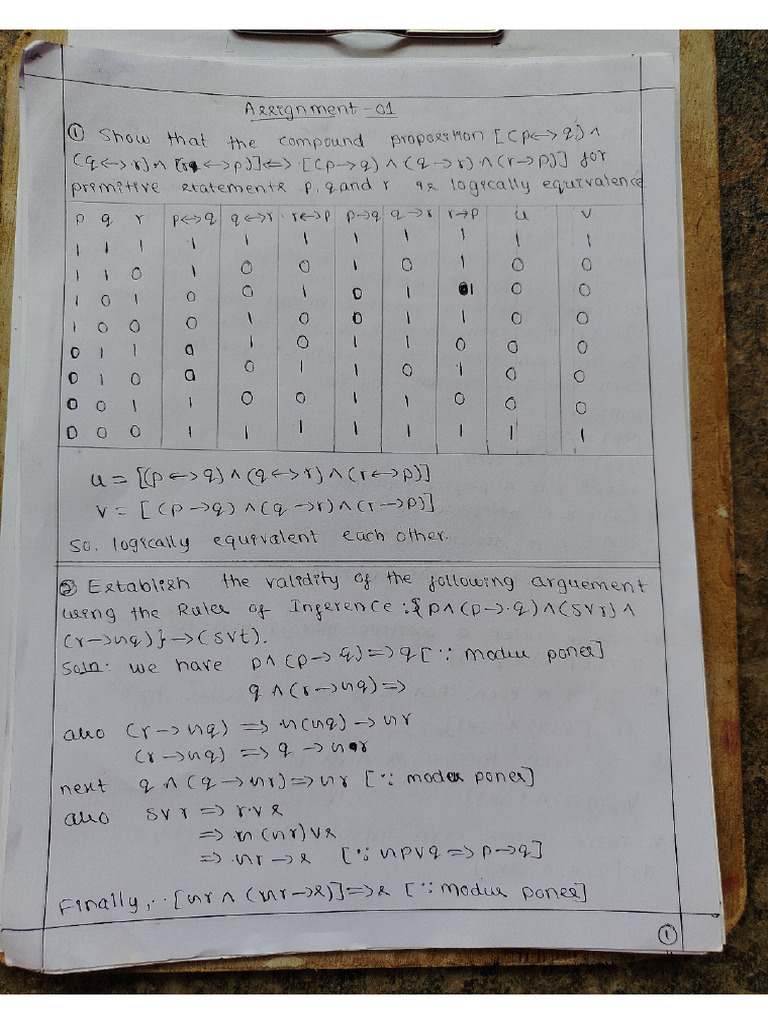 Assignment - 01
① Show that the compound proposition [(p↔q) ∧
(q↔r) ∧ (r↔p)] ↔ [(p→q) ∧ (q→r) ∧ (r→p)] for
primitive statements p, q and r is logically equivalence.
p q r p↔q q↔r r↔p p→q q→r r→p u v
1 1 1 1 1 1 1 1 1 1 1
1 1 0 1 0 0 1 0 1 0 0
1 0 1 0 0 1 0 1 1 0 0
1 0 0 0 1 0 0 1 1 0 0
0 1 1 0 1 0 1 1 0 0 0
0 1 0 0 0 1 1 0 1 0 0
0 0 1 1 0 0 1 1 0 0 0
0 0 0 1 1 1 1 1 1 1 1
u = [(p↔q) ∧ (q↔r) ∧ (r↔p)]
v = [(p→q) ∧ (q→r) ∧ (r→p)]
So. logically equivalent each other.
② Establish the validity of the following arguement
using the Rules of Inference : {p ∧ (p→q) ∧ (s∨r) ∧
(r→~q)} → (s∨t).
Soln: we have p ∧ (p→q) ⇒ q [∵ modus pones]
q ∧ (r→~q) ⇒
also (r→~q) ⇒ ~(~q) → ~r
(r→~q) ⇒ q → ~r
next q ∧ (q→~r) ⇒ ~r [∵ modus pones]
also s∨r ⇒ r∨s
⇒ ~(~r)∨s
⇒ ~r → s [∵ ~p∨q ⇒ p→q]
Finally, [~r ∧ (~r→s)] ⇒ s [∵ modus pones]
①